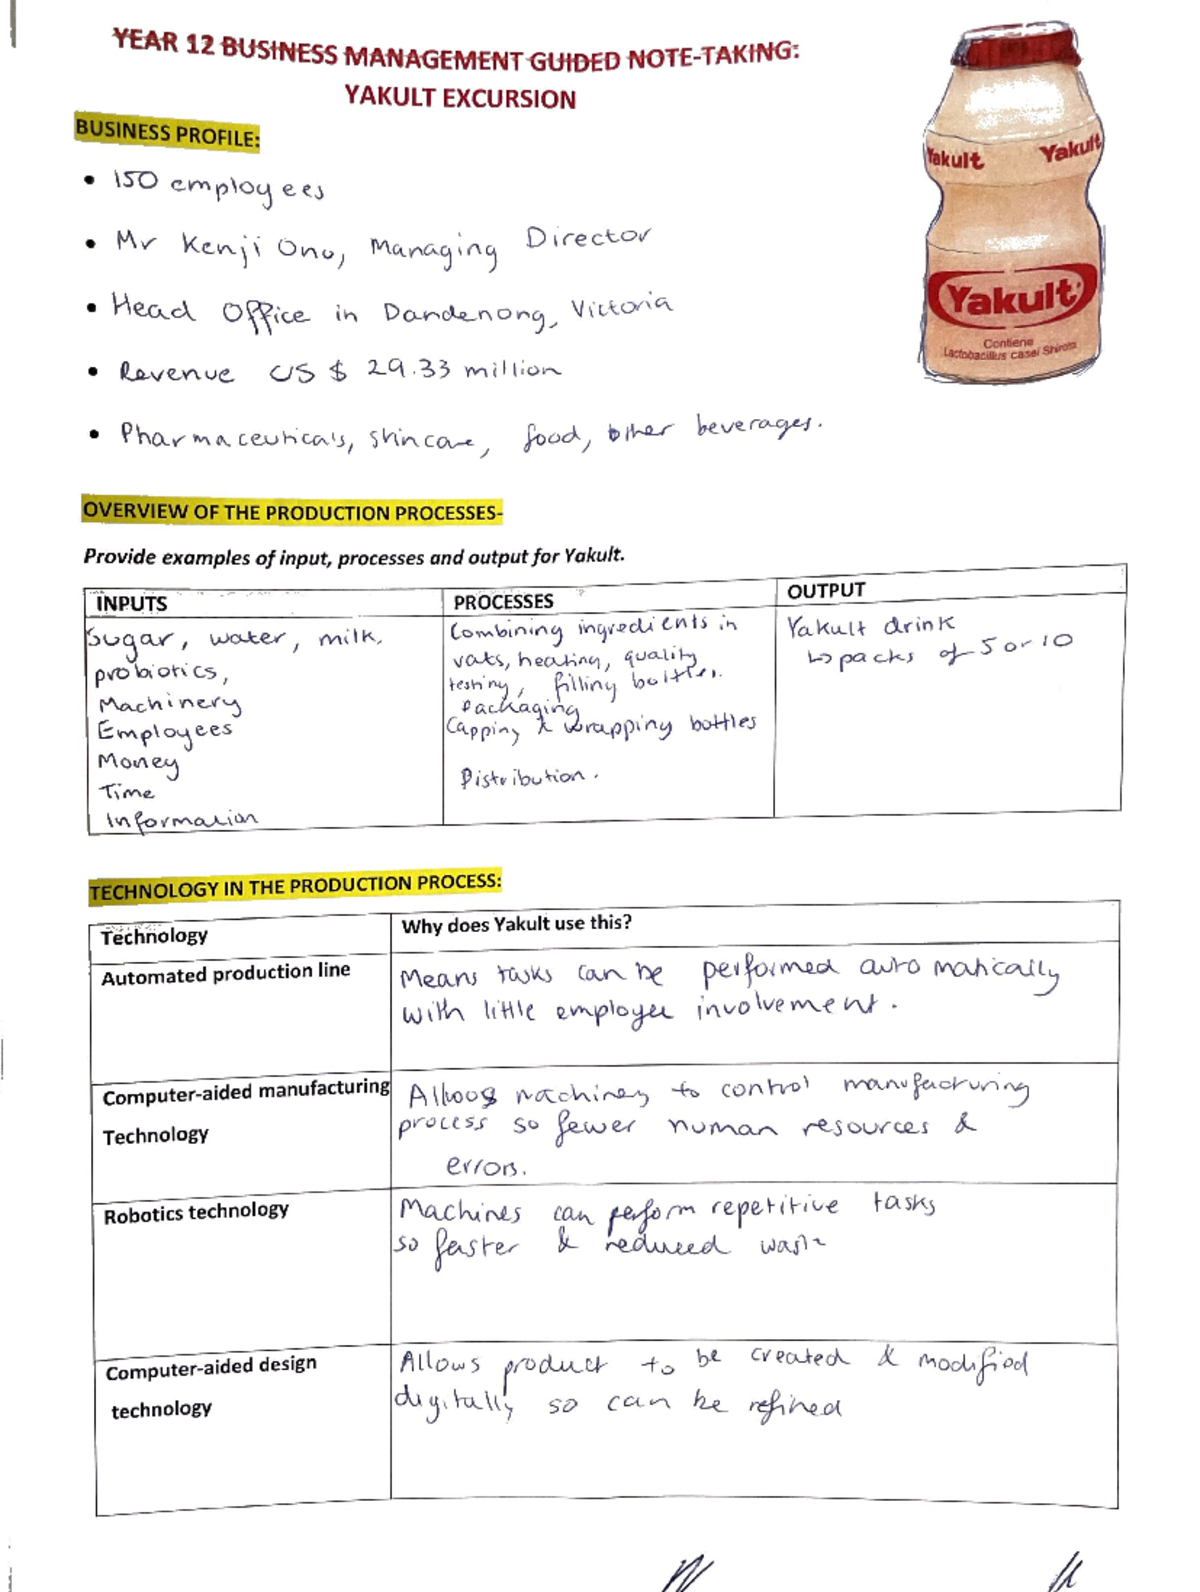 YEAR 12 BUSINESS MANAGEMENT GUIDED NOTE-TAKING:
YAKULT EXCURSION
BUSINESS PROFILE:
• 150 employees
• Mr Kenji Ono, Managing Director
• Head Office in Dandenong, Victoria
• Revenue US $ 29.33 million
• Pharmaceuticals, skincare, food, other beverages.
Yakult Yakult
Yakult
Contiene
Lactobacillus casei Shirota
OVERVIEW OF THE PRODUCTION PROCESSES-
Provide examples of input, processes and output for Yakult.
INPUTS
Sugar, water, milk,
probiotics,
Machinery
Employees
Money
Time
Information
PROCESSES
Combining ingredients in
vats, heating, quality
testing, filling bottles.
Packaging
Capping & wrapping bottles
Distribution.
OUTPUT
Yakult drink
↳ packs of 5 or 10
TECHNOLOGY IN THE PRODUCTION PROCESS:
Technology
Why does Yakult use this?
Automated production line
Means tasks can be performed automatically
with little employee involvement.
Computer-aided manufacturing
Technology
Allows machinery to control manufacturing
process so fewer human resources &
errors.
Robotics technology
Machines can perform repetitive tasks
so faster & reduced waste
Computer-aided design
technology
Allows product to be created & modified
digitally so can be refined